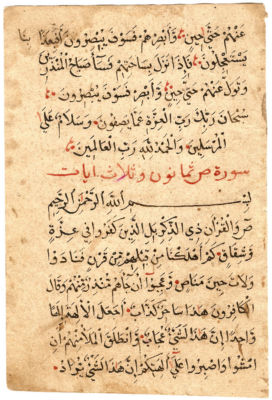 عَنْهُمْ حَتَّى حِينٍ وَأَبْصِرْهُمْ فَسَوْفَ يُبْصِرُونَ أَفَبِعَذَابِنَا
يَسْتَعْجِلُونَ فَإِذَا نَزَلَ بِسَاحَتِهِمْ فَسَاءَ صَبَاحُ الْمُنْذَرِينَ
وَتَوَلَّ عَنْهُمْ حَتَّى حِينٍ وَأَبْصِرْ فَسَوْفَ يُبْصِرُونَ
سُبْحَانَ رَبِّكَ رَبِّ الْعِزَّةِ عَمَّا يَصِفُونَ وَسَلَامٌ عَلَى
الْمُرْسَلِينَ وَالْحَمْدُ لِلَّهِ رَبِّ الْعَالَمِينَ
سورة ص ثمانون وثلاث ايات
بِسْمِ اللَّهِ الرَّحْمَنِ الرَّحِيمِ
ص وَالْقُرْآنِ ذِي الذِّكْرِ بَلِ الَّذِينَ كَفَرُوا فِي عِزَّةٍ
وَشِقَاقٍ كَمْ أَهْلَكْنَا مِنْ قَبْلِهِمْ مِنْ قَرْنٍ فَنَادَوْا
وَلَاتَ حِينَ مَنَاصٍ وَعَجِبُوا أَنْ جَاءَهُمْ مُنْذِرٌ مِنْهُمْ وَقَالَ
الْكَافِرُونَ هَذَا سَاحِرٌ كَذَّابٌ أَجَعَلَ الْآلِهَةَ إِلَهًا
وَاحِدًا إِنَّ هَذَا لَشَيْءٌ عُجَابٌ وَانْطَلَقَ الْمَلَأُ مِنْهُمْ أَنِ
امْشُوا وَاصْبِرُوا عَلَى آلِهَتِكُمْ إِنَّ هَذَا لَشَيْءٌ يُرَادُ